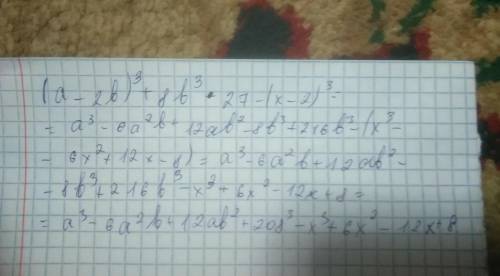 (a - 2b)³ + 8b³ · 27 - (x - 2)³ =
= a³ - 6a²b + 12ab² - 8b³ + 216b³ - (x³ -
- 6x² + 12x - 8) = a³ - 6a²b + 12ab² -
- 8b³ + 216b³ - x³ + 6x² - 12x + 8 =
= a³ - 6a²b + 12ab² + 208³ - x³ + 6x² - 12x + 8